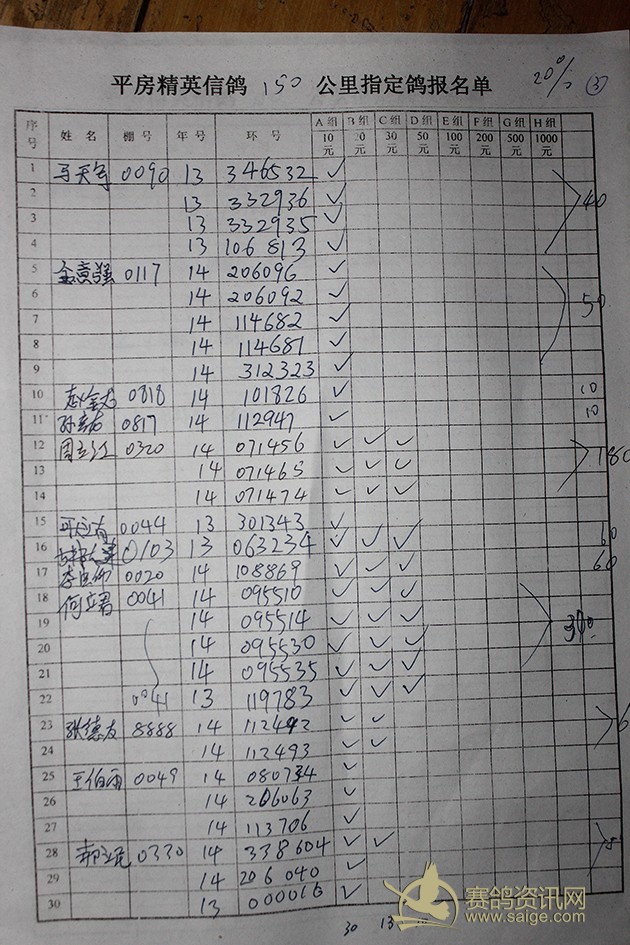 平房精英信鸽 150 公里指定鸽报名单 20% ③
序号 姓名 棚号 年号 环号 A组10元 B组20元 C组30元 D组50元 E组100元 F组200元 G组500元 H组1000元
1 0090 13 346532 ✓
2 13 332936 ✓ 40
3 13 332935 ✓
4 13 106813 ✓
5 0117 14 206096 ✓
6 14 206092 ✓ 50
7 14 114682 ✓
8 14 114681 ✓
9 14 312323 ✓
10 0818 14 101826 ✓ 10
11 0817 14 112947 ✓ 10
12 周立江 0320 14 071456 ✓ ✓ ✓
13 14 071465 ✓ ✓ ✓ 180
14 14 071474 ✓ ✓ ✓
15 0044 13 301343 ✓
16 0103 13 063234 ✓ ✓ ✓ 60
17 0020 14 108869 ✓ ✓ ✓ 60
18 何立君 0041 14 095510 ✓ ✓ ✓
19 14 095514 ✓ ✓ ✓
20 14 095530 ✓ ✓ ✓
21 14 095535 ✓ ✓ ✓
22 0041 13 119783 ✓ ✓ ✓
23 张德友 8888 14 112492 ✓ ✓
24 14 112493 ✓ ✓
25 王伯雨 0049 14 080734 ✓
26 14 206063 ✓
27 14 113706 ✓
28 0330 14 338604 ✓ ✓
29 14 206040 ✓
30 13 000016 ✓
30 13
赛鸽资讯网
www.saige.com